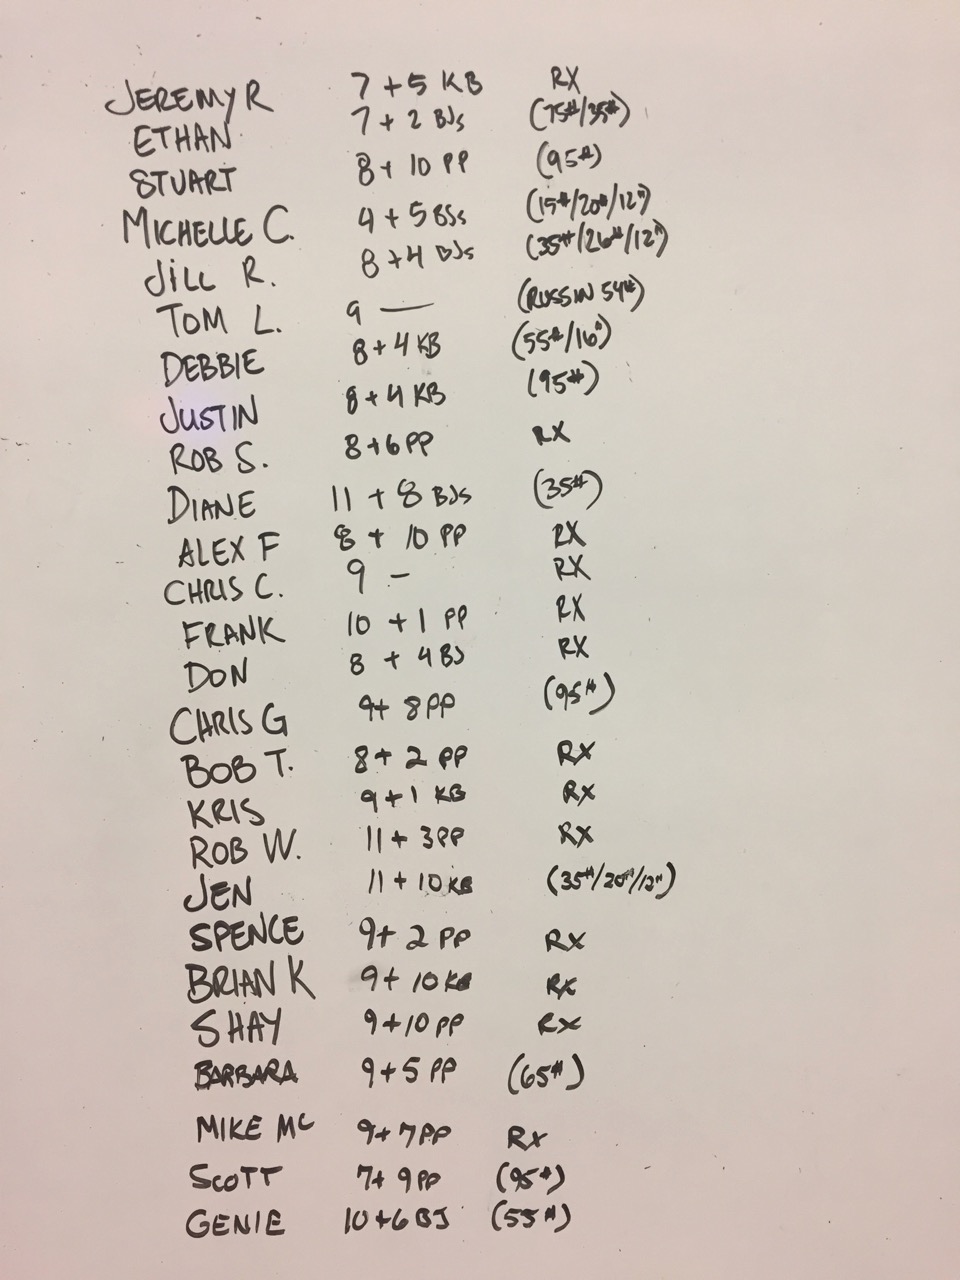 JEREMY R 7 + 5 KB RX
ETHAN 7 + 2 BJs (75#/35#)
STUART 8 + 10 PP (95#)
MICHELLE C. 4 + 5 BSs (15#/20#/12")
JILL R. 8 + 4 BJs (35#/26#/12")
TOM L. 9 — (RUSSIN 54#)
DEBBIE 8 + 4 KB (55#/16")
JUSTIN 8 + 4 KB (95#)
ROB S. 8 + 6 PP RX
DIANE 11 + 8 BJs (35#)
ALEX F 8 + 10 PP RX
CHRIS C. 9 – RX
FRANK 10 + 1 PP RX
DON 8 + 4 BJ RX
CHRIS G 9 + 8 PP (95#)
BOB T. 8 + 2 PP RX
KRIS 9 + 1 KB RX
ROB W. 11 + 3 PP RX
JEN 11 + 10 KB (35#/20#/12")
SPENCE 9 + 2 PP RX
BRIAN K 9 + 10 KB RX
SHAY 9 + 10 PP RX
BARBARA 9 + 5 PP (65#)
MIKE MC 9 + 7 PP RX
SCOTT 7 + 9 PP (95#)
GENIE 10 + 6 BJ (55#)